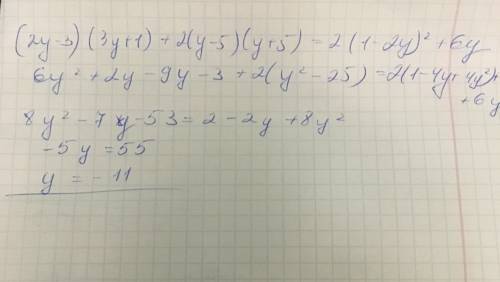 (2y-3)(3y+1)+2(y-5)(y+5)=2(1-2y)²+6y
6y²+2y-9y-3+2(y²-25)=2(1-4y+4y²)+
+6y
8y²-7y-53=2-2y+8y²
-5y=55
y=-11